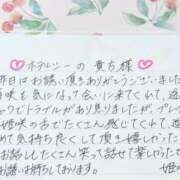 ♡ホテルシーの貴方様♡
昨日はお誘い頂きありがとうございました
姫咲を気になって会いに来てくれて、途
トラブルがありましたが、プレ
姫咲の舌でたくさん感じてくれて、
めて気持ち良くして頂き嬉しかった
お話したくさん笑って話せて楽しかったで
お誘いお待ちしております。
姫